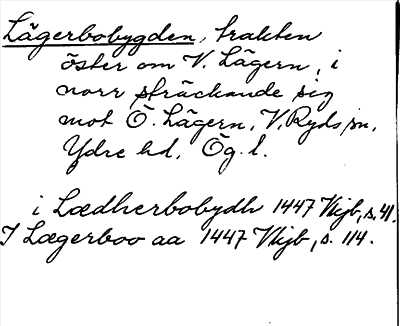 Lägerbobygden, trakten
öster om V. Lägern, i
norr sträckande sig
mot Ö. Lägern, V. Ryds sn,
Ydre hd, Ög. l.
i Lædherbobydh 1447 Vkjb, s. 41.
I Lægerboo aa 1447 Vkjb, s. 114.